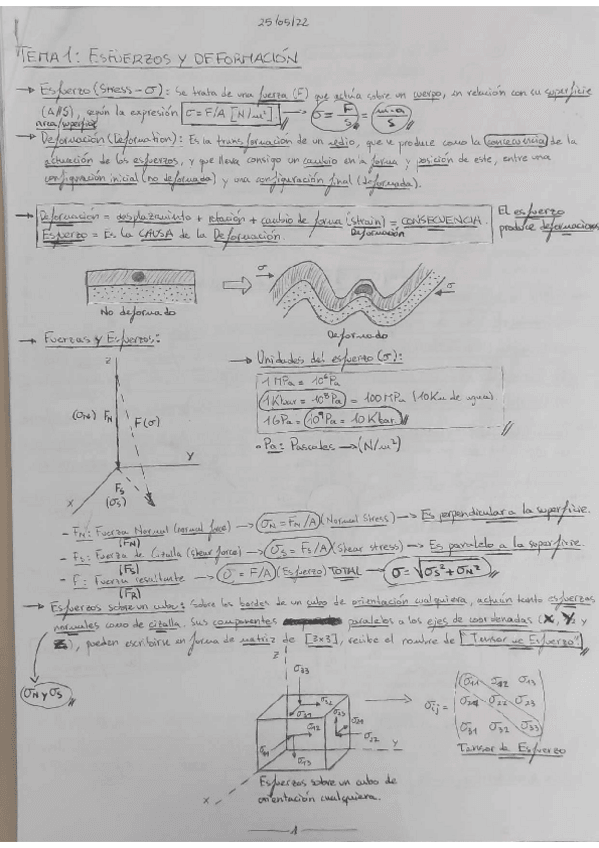 25/05/22
TEMA 1: ESFUERZOS Y DEFORMACIÓN
→ Esfuerzo (Stress - σ): Se trata de una fuerza (F) que actúa sobre un cuerpo, en relación con su superficie
(A//S), según la expresión σ = F/A [N/m²] → σ = F/S = m·a/S
area/superficie
→ Deformación (Deformation): Es la transformación de un medio, que se produce como la consecuencia de la
actuación de los esfuerzos, y que lleva consigo un cambio en la forma y posición de este, entre una
configuración inicial (no deformada) y una configuración final (deformada).
→ Deformación = desplazamiento + rotación + cambio de forma (strain) = CONSECUENCIA.
Deformación
Esfuerzo = Es la CAUSA de la Deformación.
El esfuerzo
produce deformaciones
No deformado
σ
σ
Deformado
→ Fuerzas y Esfuerzos:
→ Unidades del esfuerzo (σ):
1 MPa = 10⁶ Pa
1 Kbar = 10⁸ Pa = 100 MPa (10 Km de agua)
1 GPa = 10⁹ Pa = 10 Kbar
- Pa: Pascales → (N/m²)
Z
(σN) FN F(σ)
Y
X
FS
(σS)
- FN: Fuerza Normal (normal force) → σN = FN/A (Normal Stress) → Es perpendicular a la superficie.
(FN)
- FS: Fuerza de Cizalla (shear force) → σS = FS/A (Shear stress) → Es paralelo a la superficie.
(FS)
- F: Fuerza resultante → σ = F/A (Esfuerzo) TOTAL → σ = √σS² + σN²
(FR)
→ Esfuerzos sobre un cubo: Sobre los bordes de un cubo de orientación cualquiera, actúan tanto esfuerzos
normales como de cizalla. Sus componentes paralelos a los ejes de coordenadas (X, Y y
Z), pueden escribirse en forma de matriz de [3x3], recibe el nombre de "Tensor de Esfuerzo"
σN y σS
Z
σ33
σ32
σ31
σ23
σ12
σ21
σ22
σ11
σ13
Y
X
σij =
σ11 σ12 σ13
σ21 σ22 σ23
σ31 σ32 σ33
Tensor de Esfuerzo
Esfuerzos sobre un cubo de
orientación cualquiera.
1